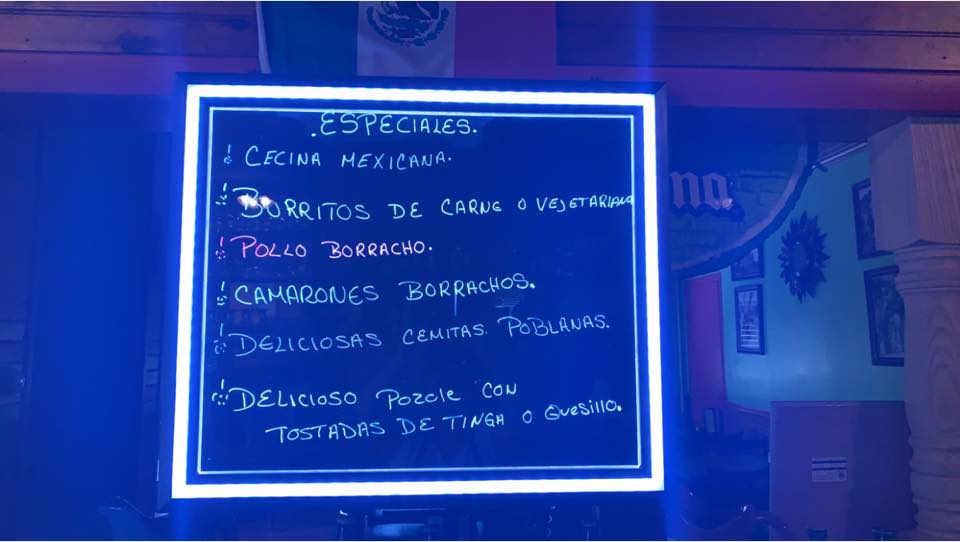 .ESPECIALES.
CECINA MEXICANA.
BURRITOS DE CARNE O VEJETARIANA
POLLO BORRACHO.
CAMARONES BORRACHOS.
DELICIOSAS CEMITAS. POBLANAS.
DELICIOSO Pozole CON
TOSTADAS DE TINGA O Quesillo.
na